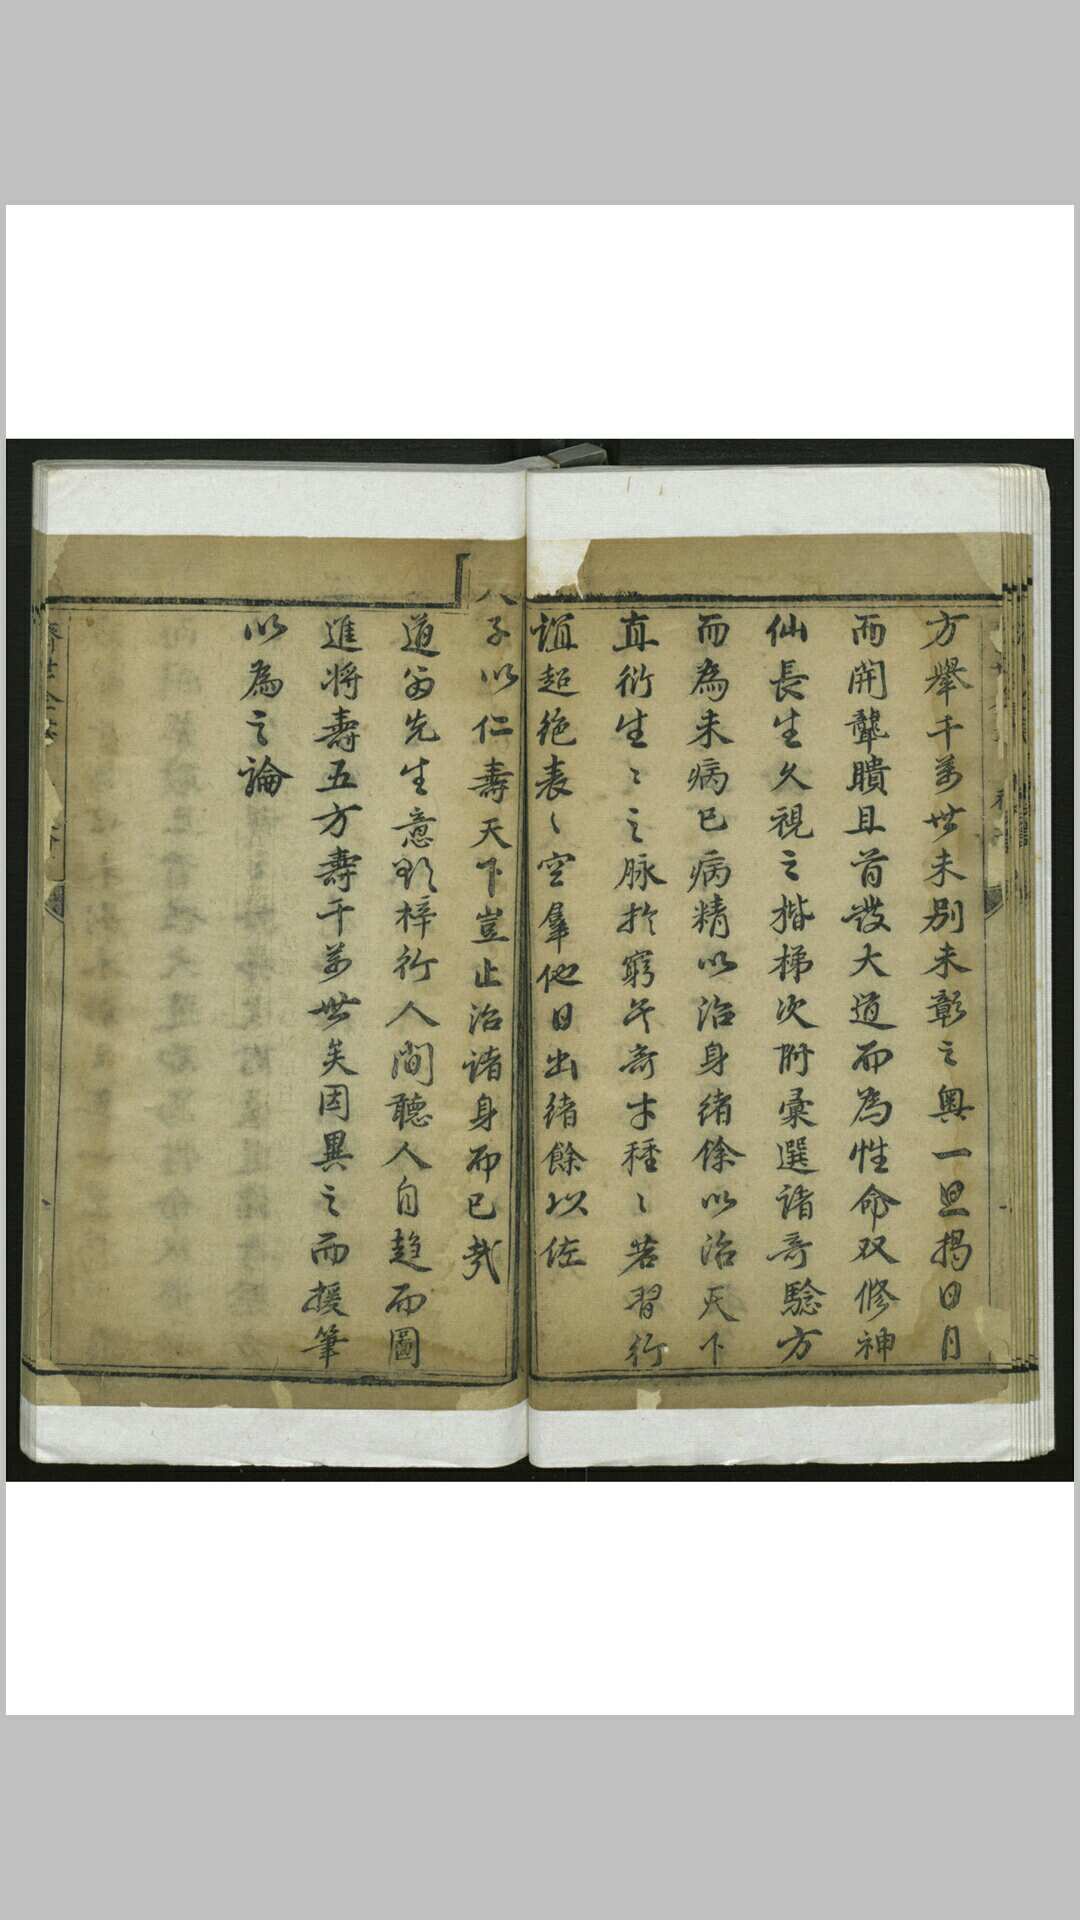 方舉千萬世未別未彰之奧一旦揭日月
而開聾聵且首發大道而為性命双修神
仙長生久視之楷梯次附彙選諸奇驗方
而為未病已病精以治身緒餘以治天下
直衍生〻之脉扵窮
奇才種〻若習行
誼超絶表〻空羣他日出緒餘以佐
天子以仁壽天下豈止治諸身而已哉
道翁先生意欵梓行人間聽人自趋而圖
進将壽五方壽千萬世矣因異之而援筆
以為之論
濟世全